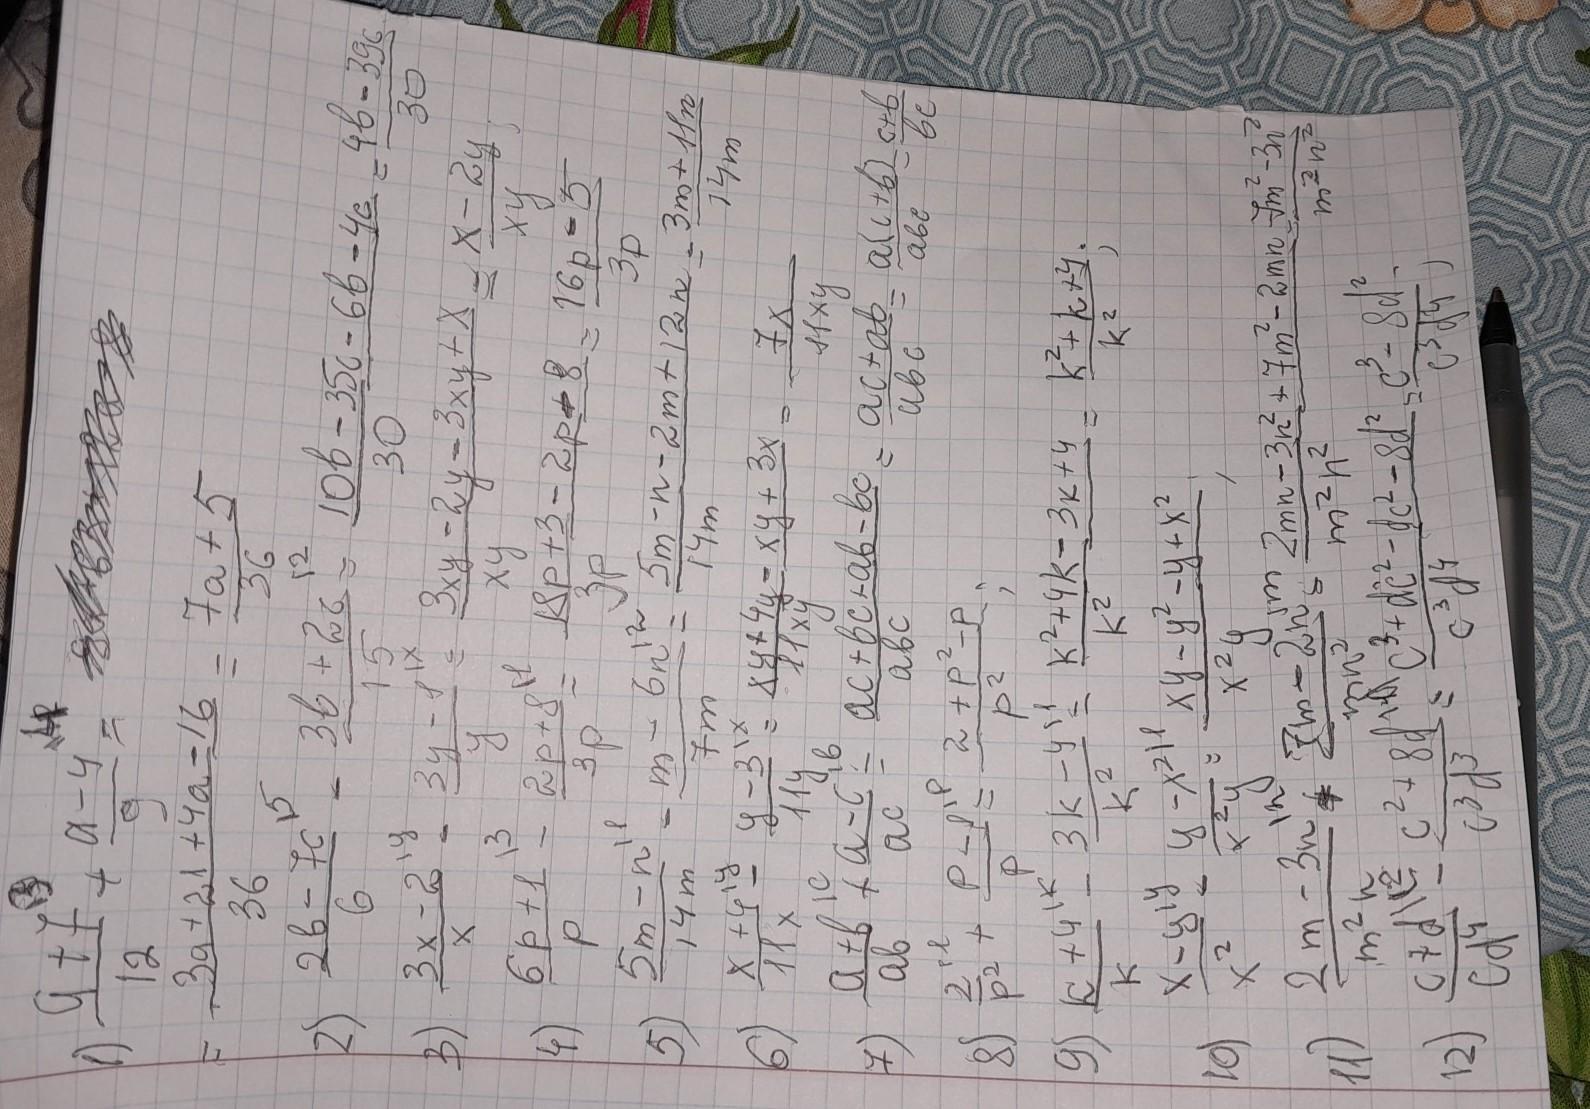 1) a+7/12 + a-4/9 =
= 3a+21+4a-16/36 = 7a+5/36
2) 2b-7c\5/6 - 3b+2c\2/15 = 10b-35c-6b-4c/30 = 4b-39c/30
3) 3x-2\y/x - 3y-1\x/y = 3xy-2y-3xy+x/xy = x-2y/xy;
4) 6p+1\3/p - 2p+8\1/3p = 18p+3-2p+8/3p = 16p-5/3p
5) 5m-n\1/14m - m-6n\2/7m = 5m-n-2m+12n/14m = 3m+11n/14m
6) x+4\y/11x - y-3\x/11y = xy+4y-xy+3x/11xy = 7x/11xy
7) a+b\c/ab + a-c\b/ac = ac+bc+ab-bc/abc = ac+ab/abc = a(c+b)/abc = c+b/bc
8) 2\1/p² + p-1\p/p = 2+p²-p/p²;
9) k+4\k/k - 3k-4\1/k² = k²+4k-3k+4/k² = k²+k+4/k²;
10) x-y\y/x² - y-x²\1/x²y = xy-y²-y+x²/x²y;
11) 2m-3n\n/m²n - 7m-2n\m/mn² = 2mn-3n²+7m²-2mn/m²n² = 7m²-3n²/m²n²
12) c+d\c²/cd⁴ - c²+8d\d/c³d³ = c³+dc²-dc²-8d²/c³d⁴ = c³-8d²/c³d⁴;